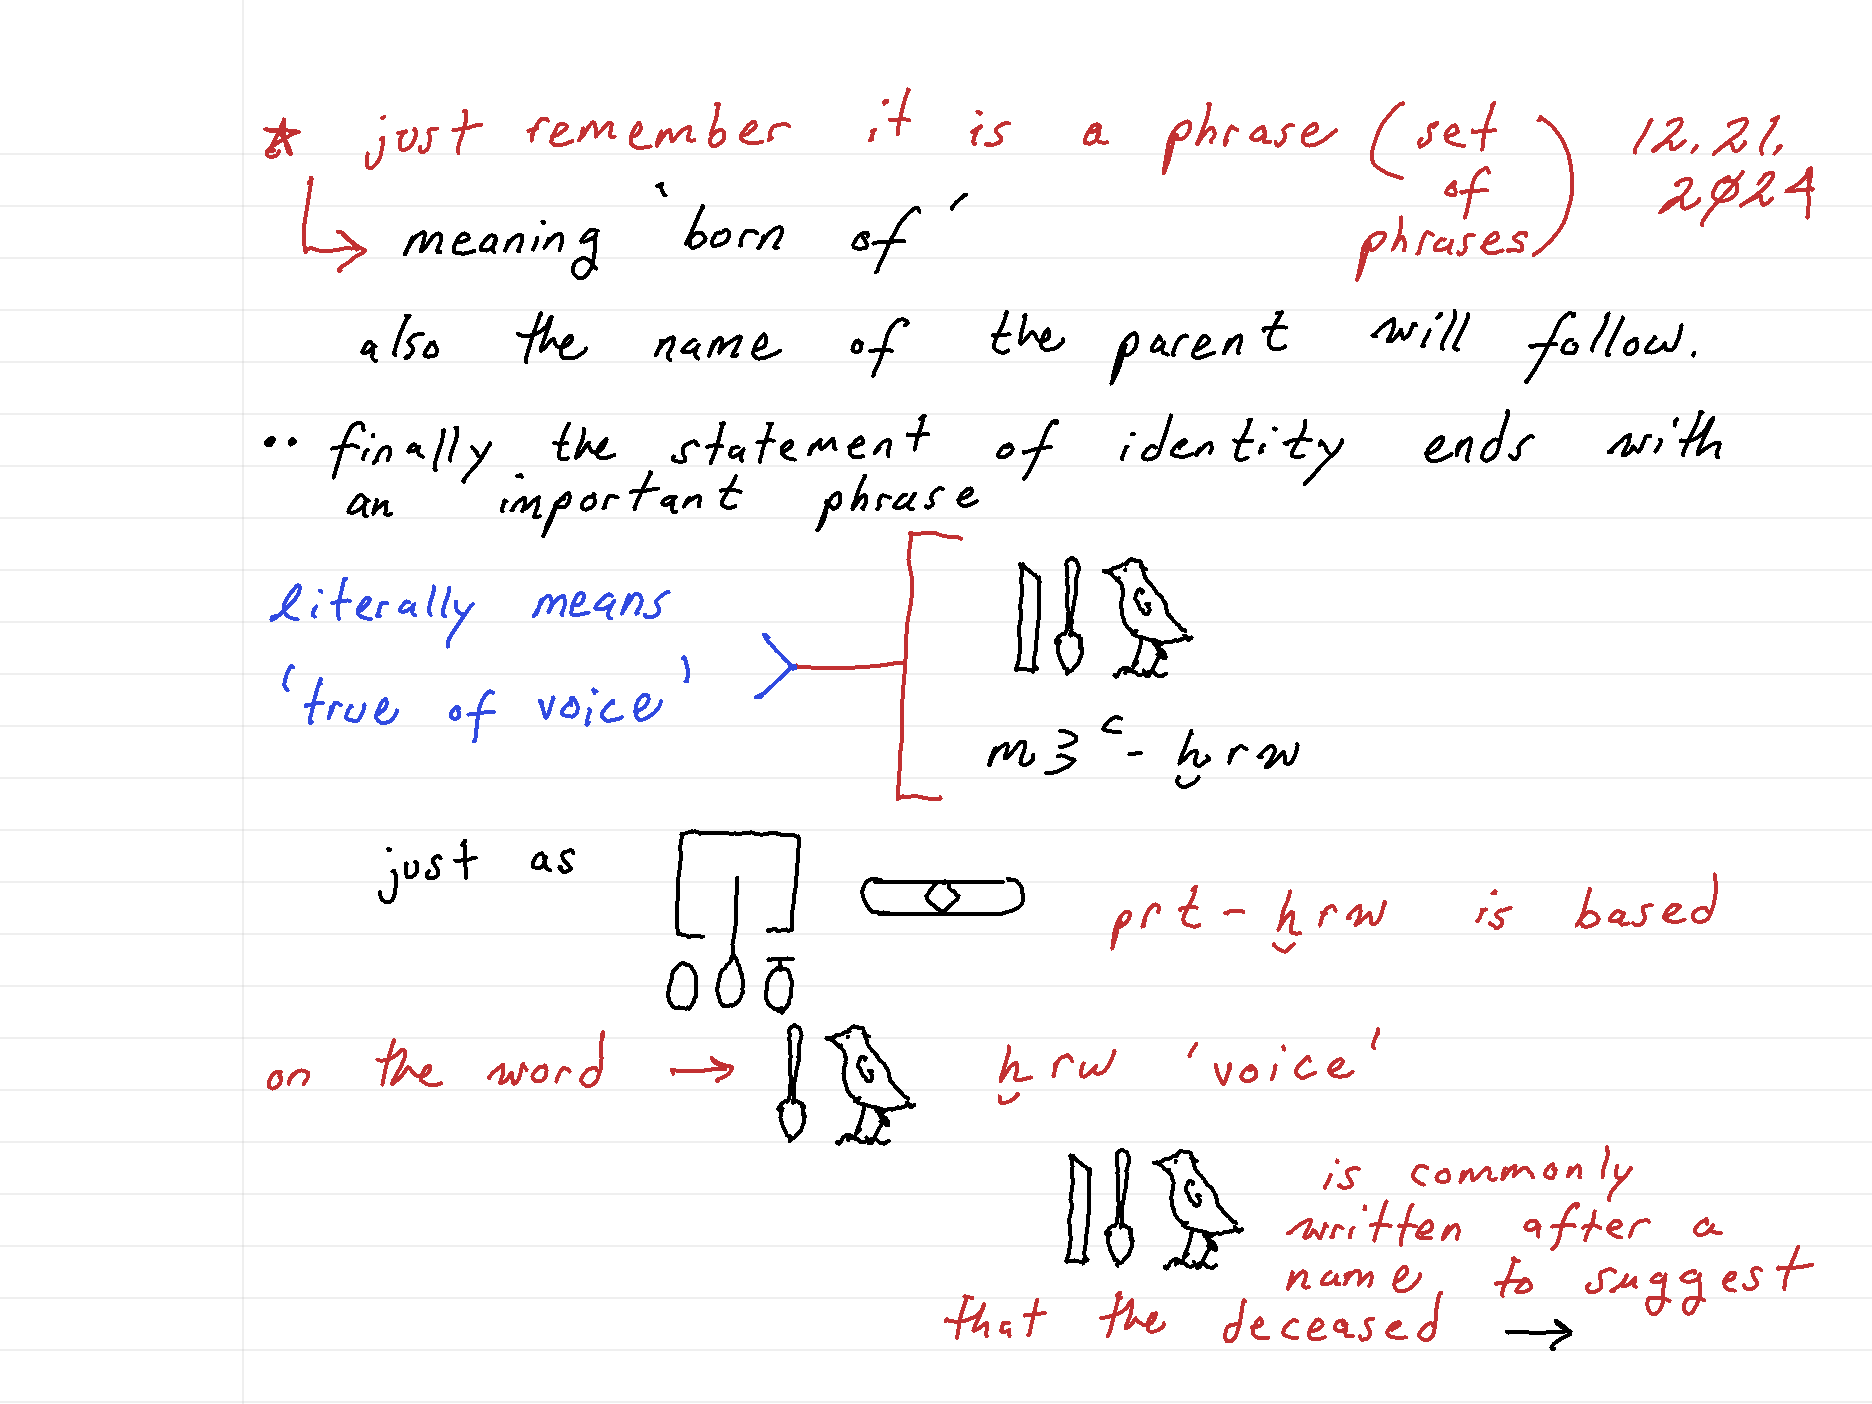 * just remember it is a phrase (set of phrases) 12.21.2024
↳ meaning 'born of'
also the name of the parent will follow.
•• finally the statement of identity ends with
an important phrase
literally means
'true of voice'
m3ꜥ-ḫrw
just as prt-ḫrw is based
on the word → ḫrw 'voice'
is commonly
written after a
name to suggest
that the deceased →